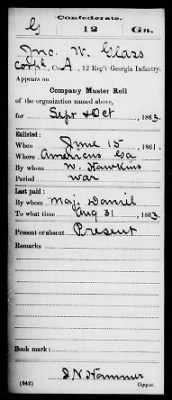 Confederate.
G 12 Ga.
Jno. W. Glass
Corpl, Co. A, 12 Reg't Georgia Infantry.
Appears on
Company Muster Roll
of the organization named above,
for Sept & Oct, 1863.
Enlisted:
When June 15, 1861.
Where Americus Ga
By whom W. Hawkins
Period war
Last paid:
By whom Maj. Daniel
To what time Aug 31, 1863.
Present or absent Present
Remarks:
Book mark:
(642) Copyist.